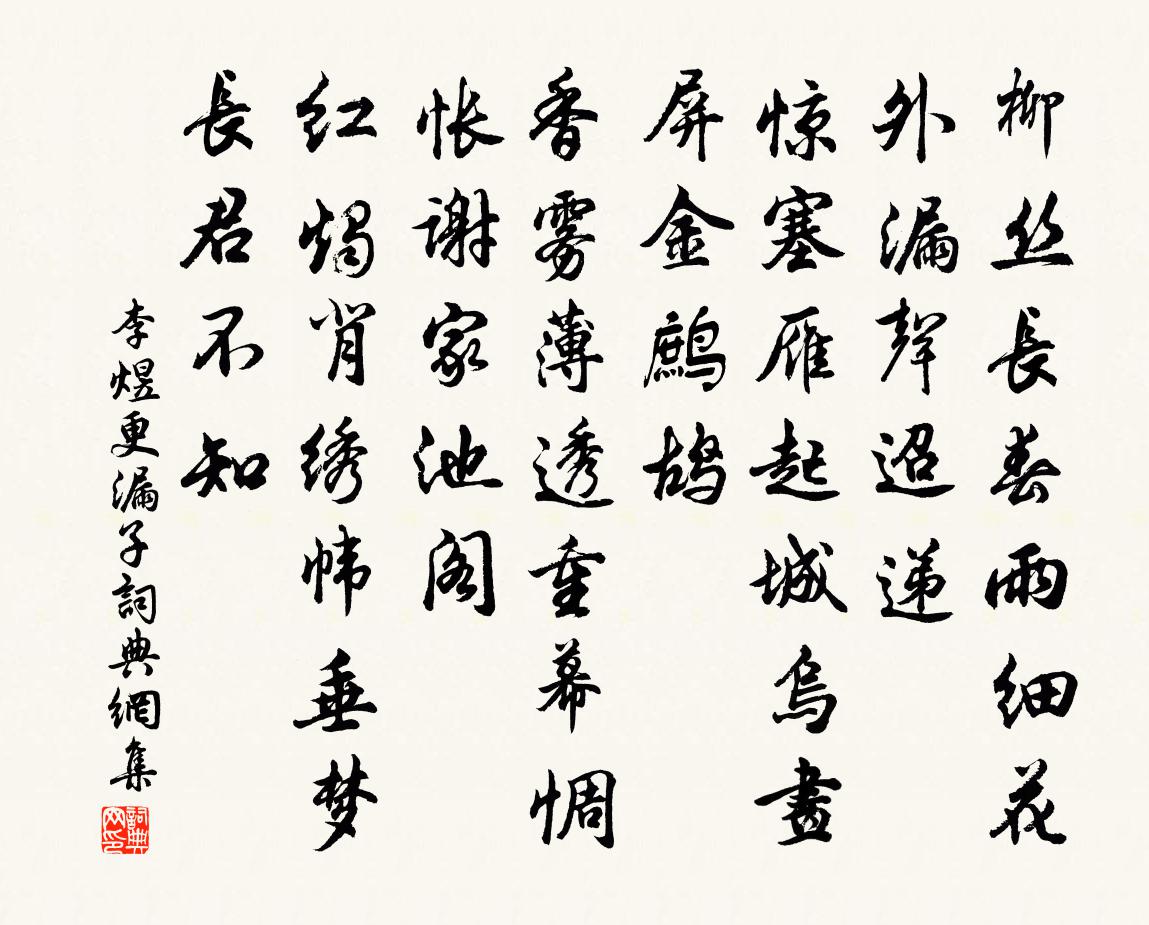 柳丝長春雨細花
外漏聲迢递
惊塞雁起城烏畫
屏金鹧鸪
香雾薄透重幕惆
怅谢家池阁
红烛背绣帏垂梦
長君不知
李煜更漏子詞典網集
詞典网印